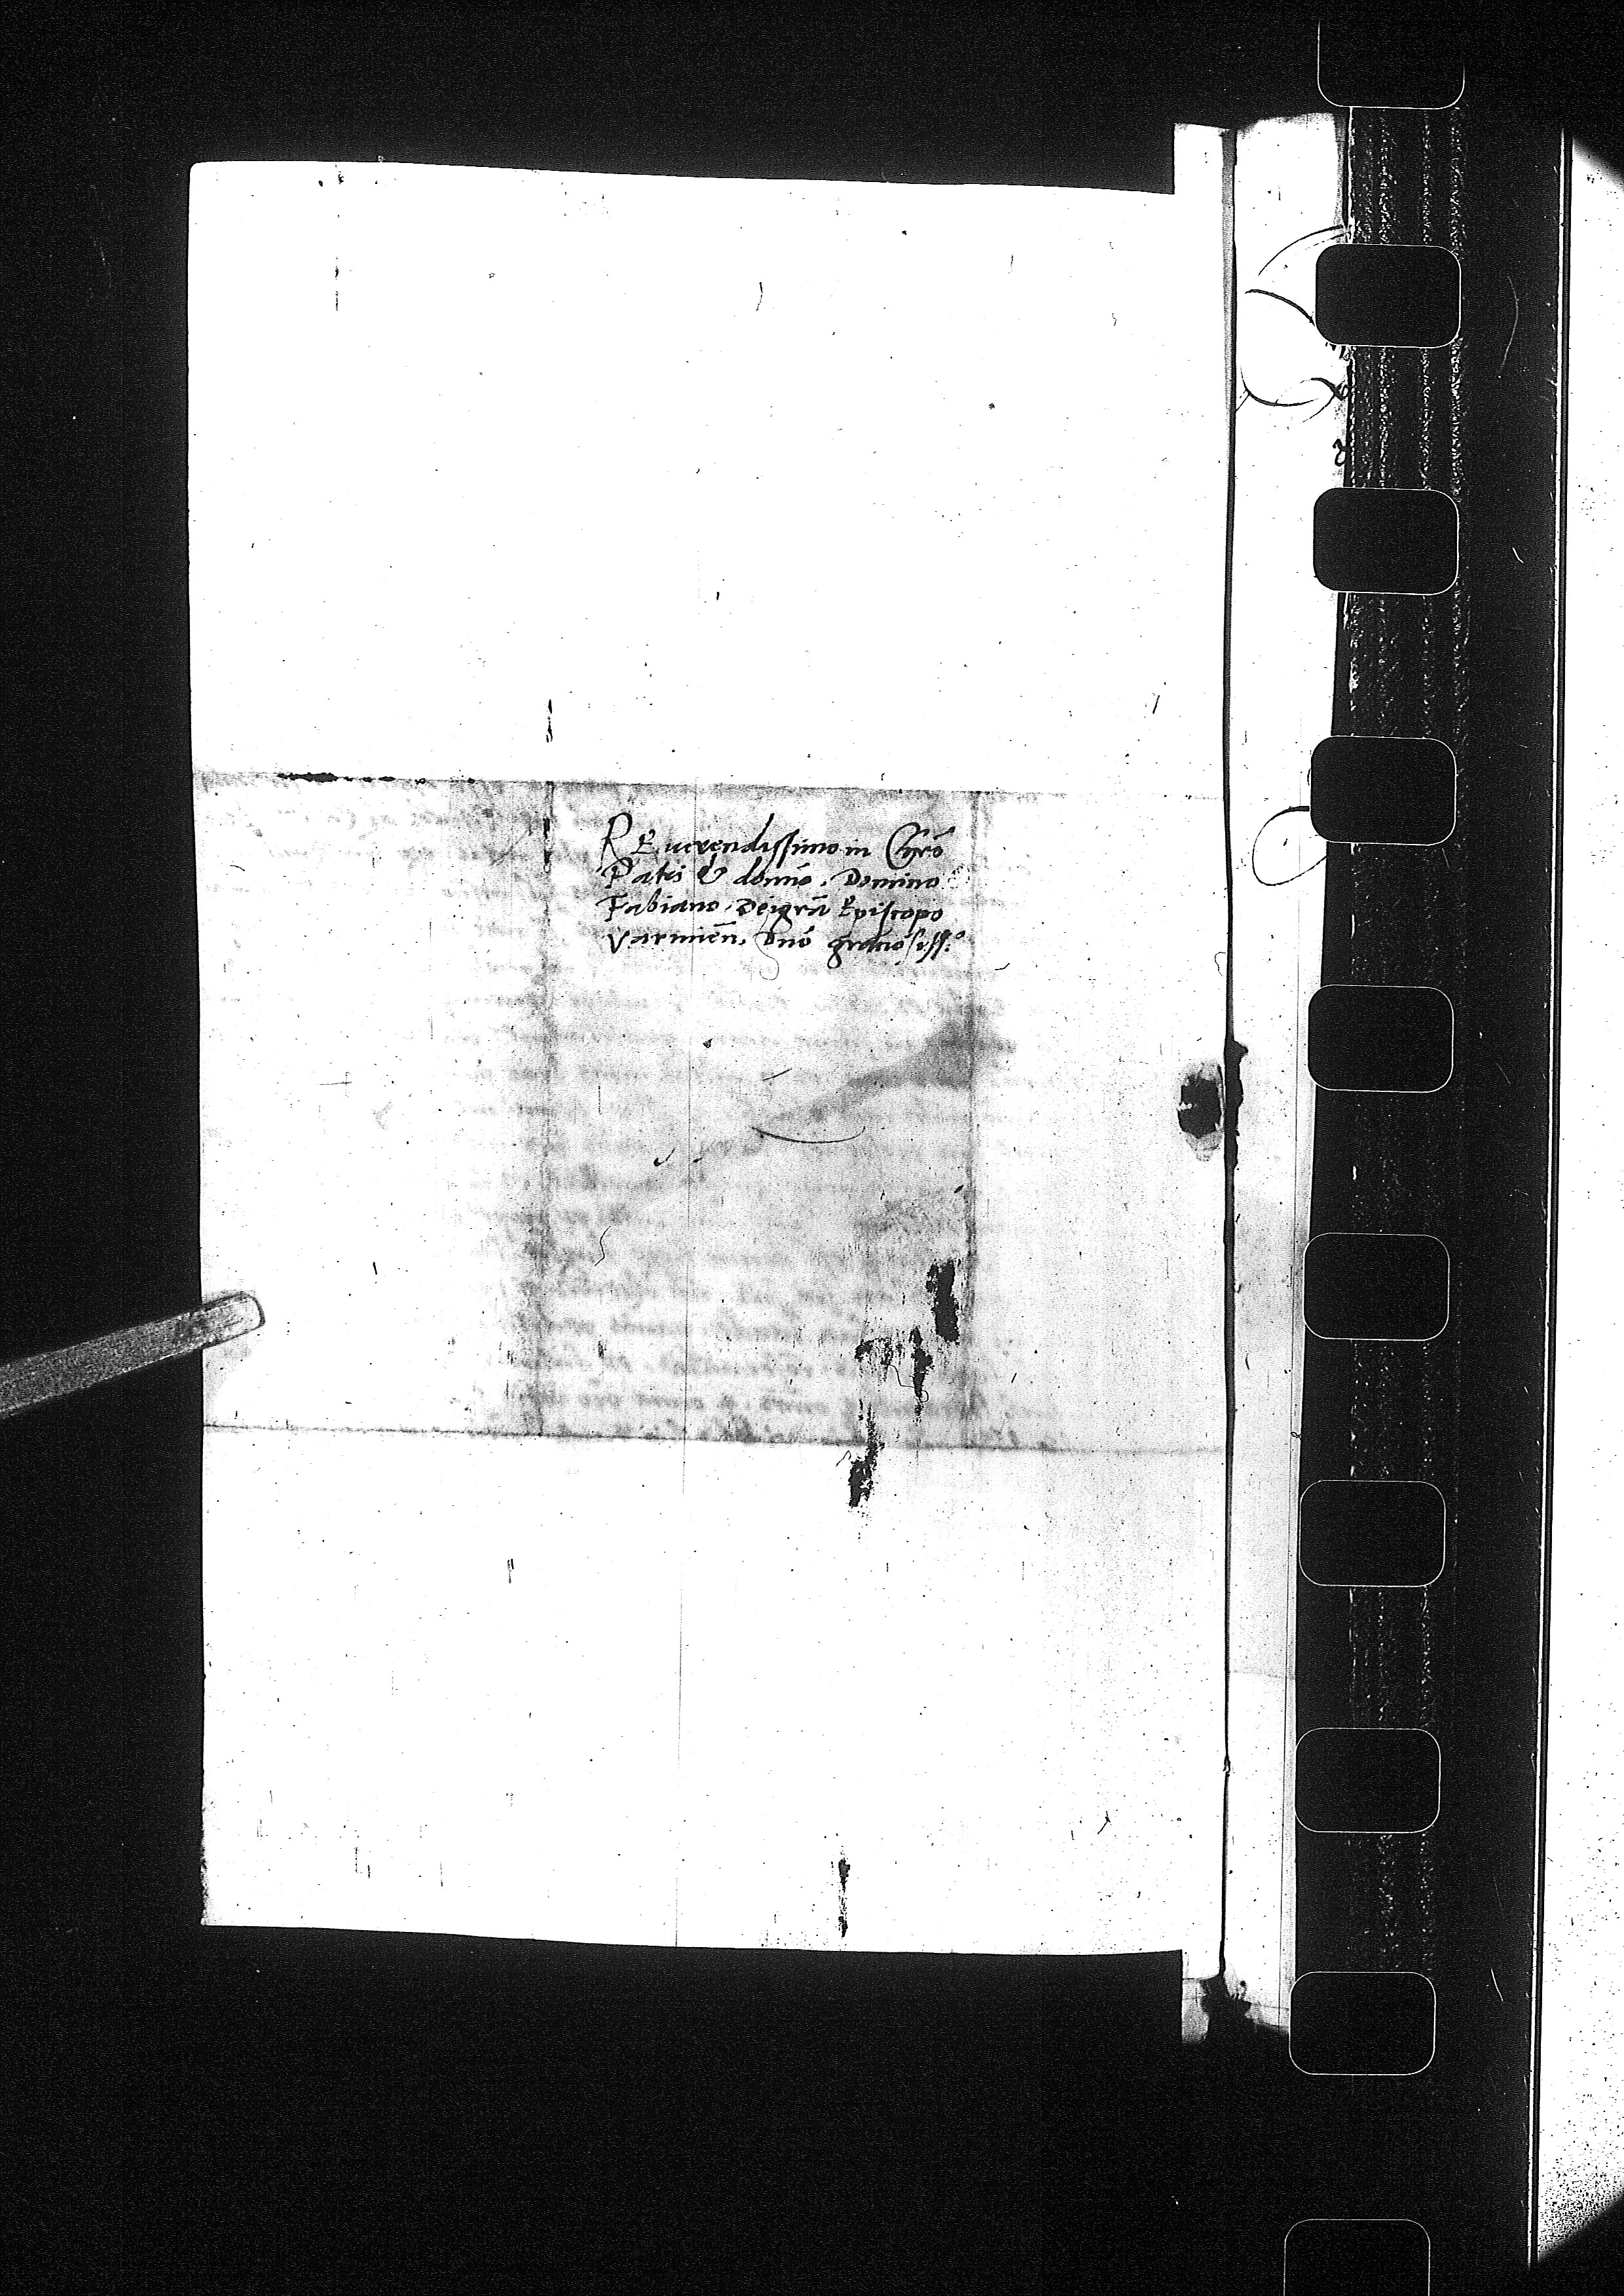 REuerendissimo in Chro
Patri & domio. Domino
Fabiano Dei gra Episcopo
Varmien. Dno gratiosiss.o